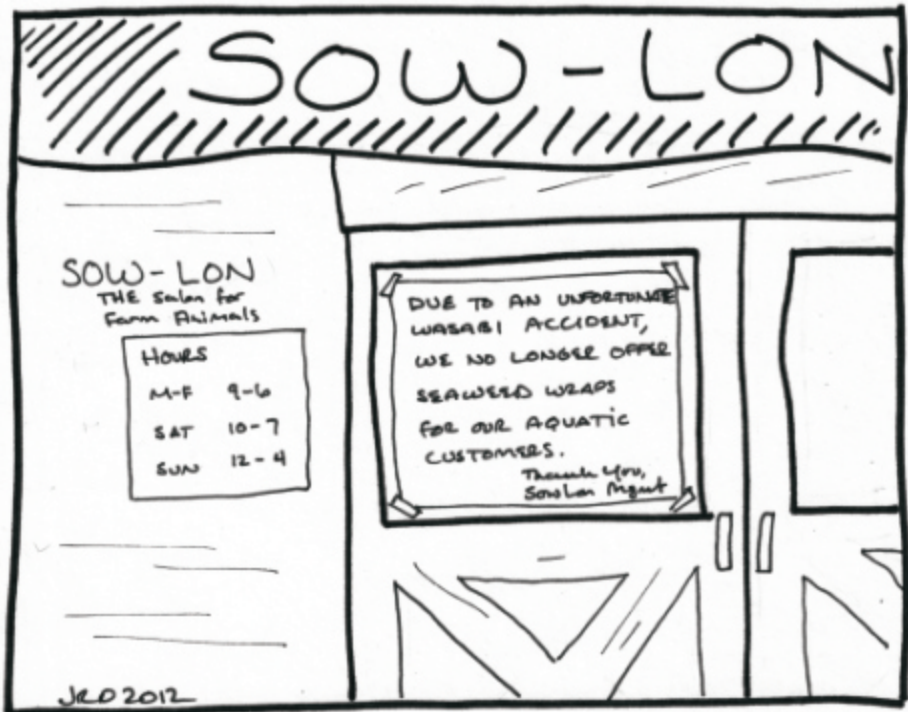 SOW-LON
SOW-LON
THE Salon for
Farm Animals
HOURS
M-F 9-6
SAT 10-7
SUN 12-4
DUE TO AN UNFORTUNATE
WASABI ACCIDENT,
WE NO LONGER OFFER
SEAWEED WRAPS
FOR OUR AQUATIC
CUSTOMERS.
Thank You,
SowLon Mgmt
JRD 2012